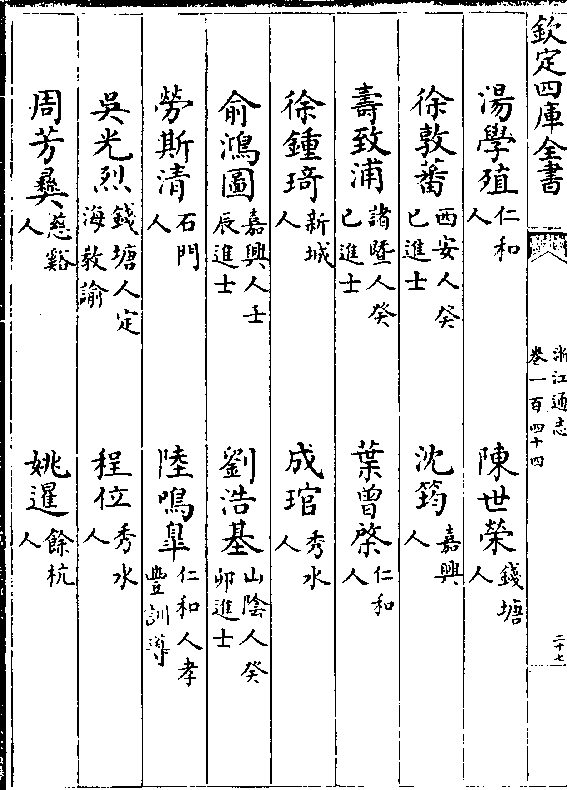 欽定四庫全書
浙江通志
卷一百四十四
二十七
湯學殖 仁和人
陳世榮 錢塘人
徐敦蕃 西安人癸巳進士
沈筠 嘉興人
壽致浦 諸暨人癸巳進士
葉曾棨 仁和人
徐鍾琦 新城人
成琯 秀水人
俞鴻圖 嘉興人壬辰進士
劉浩基 山陰人癸卯進士
勞斯清 石門人
陸鳴臯 仁和人孝豐訓導
吳光烈 錢塘人定海敎諭
程位 秀水人
周芳彝 慈谿人
姚暹 餘杭人